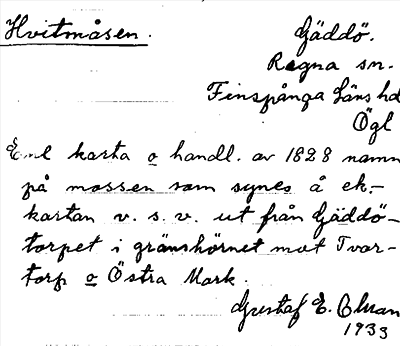 Hvitmåsen.
Gäddö.
Regna sn.
Finspånga läns hd
Ögl
Enl karta o handl. av 1828 namn
på mossen som synes å ek.-
kartan v. s. v. ut från Gäddö-
torpet i gränshörnet mot Tvar-
torp o Östra Mark.
Gustaf E. Ohran
1933